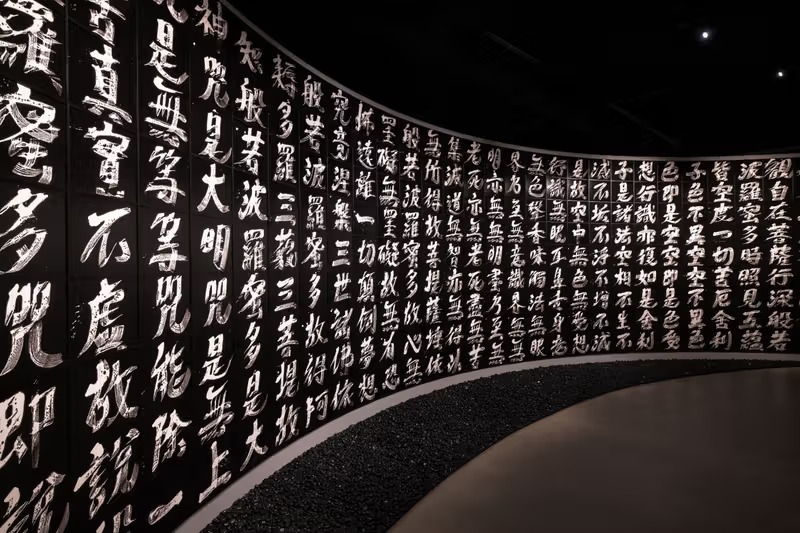 觀自在菩薩行深般若
波羅蜜多時照見五蘊
皆空度一切苦厄舍利
子色不異空空不異色
色即是空空即是色受
想行識亦復如是舍利
子是諸法空相不生不
滅不垢不淨不增不減
是故空中無色無受想
行識無眼耳鼻舌身意
無色聲香味觸法無眼
界乃至無意識界無無
明亦無無明盡乃至無
老死亦無老死盡無苦
集滅道無智亦無得以
無所得故菩提薩埵依
般若波羅蜜多故心無
罣礙無罣礙故無有恐
怖遠離一切顛倒夢想
究竟涅槃三世諸佛依
般若波羅蜜多故得阿
耨多羅三藐三菩提故
知般若波羅蜜多是大
神咒是大明咒是無上
是無等等咒能除一
苦真實不虛故說
羅蜜多咒即說